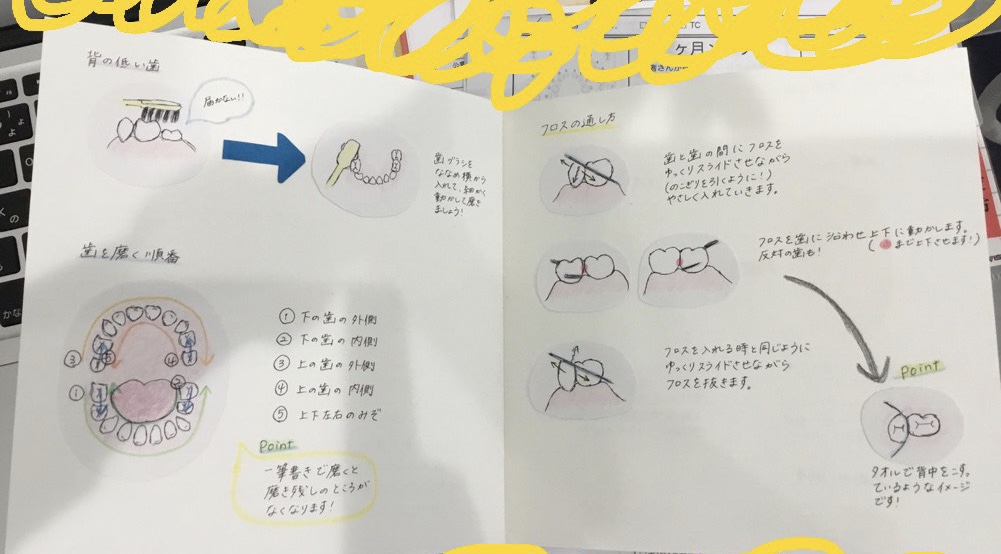 TC
ケ月
背の低い歯
届かない!!
歯ブラシを
ななめ横から
入れて、細かく
動かして磨き
ましょう!
歯を磨く順番
③
⑤
④
①
②
① 下の歯の外側
② 下の歯の内側
③ 上の歯の外側
④ 上の歯の内側
⑤ 上下左右のみぞ
Point
一筆書きで磨くと
磨き残しのところが
なくなります!
フロスの通し方
歯と歯の間にフロスを
ゆっくりスライドさせながら
(のこぎりを引くように!)
やさしく入れていきます。
フロスを歯に沿わせ上下に動かします。
反対の歯も! ( まで上下させます!)
フロスを入れる時と同じように
ゆっくりスライドさせながら
フロスを抜きます。
Point
タオルで背中をこすっ
ているようなイメージ
です!